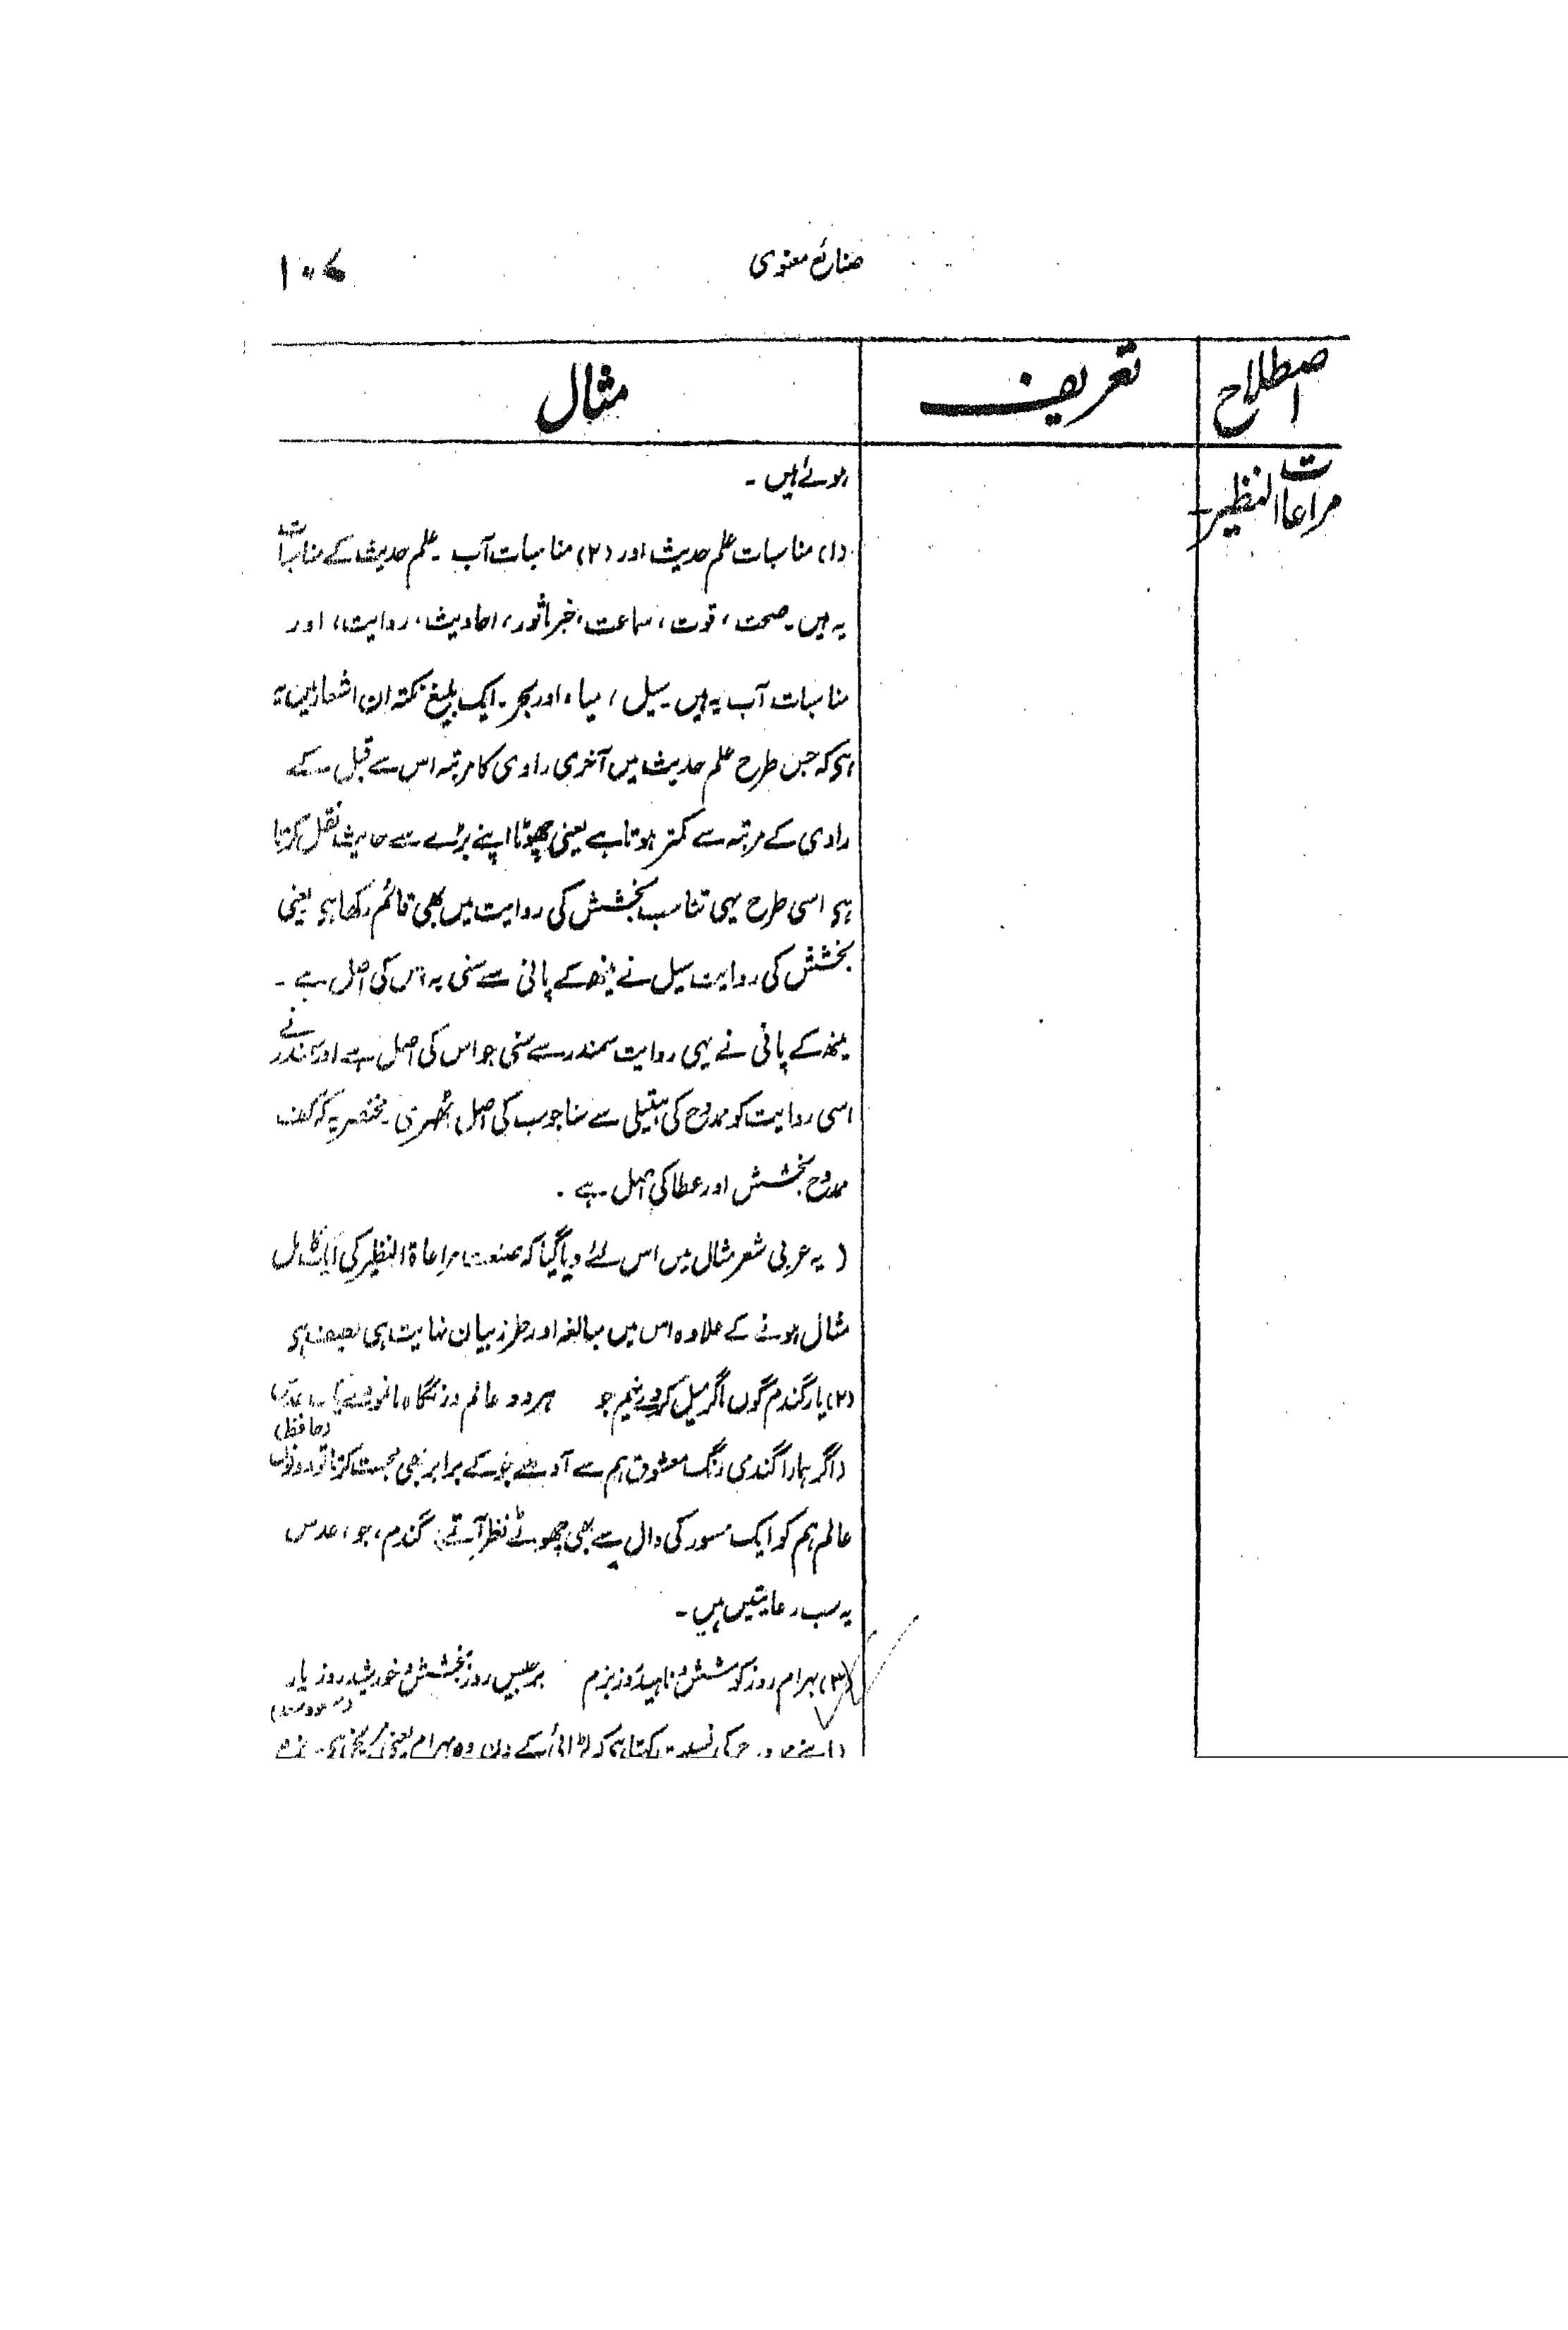 صنائع معنوی
۱۰۷
اصطلاح
تعریف
مثال
مراعات النظیر۔
ہوئے ہیں۔
(۱) مناسبات علم حدیث اور (۲) مناسبات آب۔ علم حدیث کے مناسبات
یہ ہیں۔ صحت، قوت، سماعت، خبر ماثور، احادیث، روایت، اور
مناسبات آب یہ ہیں۔ سیل، میاہ اور بحر۔ ایک بلیغ نکتہ ان اشعار میں یہ
ہی کہ جس طرح علم حدیث میں آخری راوی کا مرتبہ اس سے قبل کے
راوی کے مرتبہ سے کمتر ہوتا ہے یعنی چھوٹا اپنے بڑے سے حدیث نقل کرتا
ہی اسی طرح یہی تناسب بخشش کی روایت میں بھی قائم رکھا ہی یعنی
بخشش کی روایت سیل نے مینھ کے پانی سے سنی یہ اس کی اصل ہے۔
مینھ کے پانی نے یہی روایت سمندر سے سنی جو اس کی اصل ہے اور سمندر نے
اسی روایت کو ممدوح کی ہتیلی سے سنا جو سب کی اصل ٹھہری۔ مختصر یہ کہ کف
ممدوح بخشش اور عطا کی اصل ہے۔
( یہ عربی شعر مثال میں اس لئے دیا گیا کہ صنعت مراعاۃ النظیر کی
مثال ہونے کے علاوہ اس میں مبالغہ اور طرز بیان نہایت ہی ہی
(۲) یار گندم گوں اگر میل کردے نیم جو ہر دو عالم در نگاہ ما نمودے یک عدس
(حافظ)
(اگر ہمارا گندمی رنگ معشوق ہم سے آدھے جو کے برابر بھی محبت کرتا تو دونوں
عالم ہم کو ایک مسور کی دال سے بھی چھوٹے نظر آتے) گندم، جو، عدس
یہ سب رعایتیں ہیں۔
(۳) بہرام روز کوشش و ناہید روز بزم برجیس روز بخشش و خورشید روز بار
(مسعود سعد)
(اپنے ممدوح کی نسبت کہتا ہی کہ لڑائی کے دن وہ بہرام یعنی مریخ ہی۔ بزم